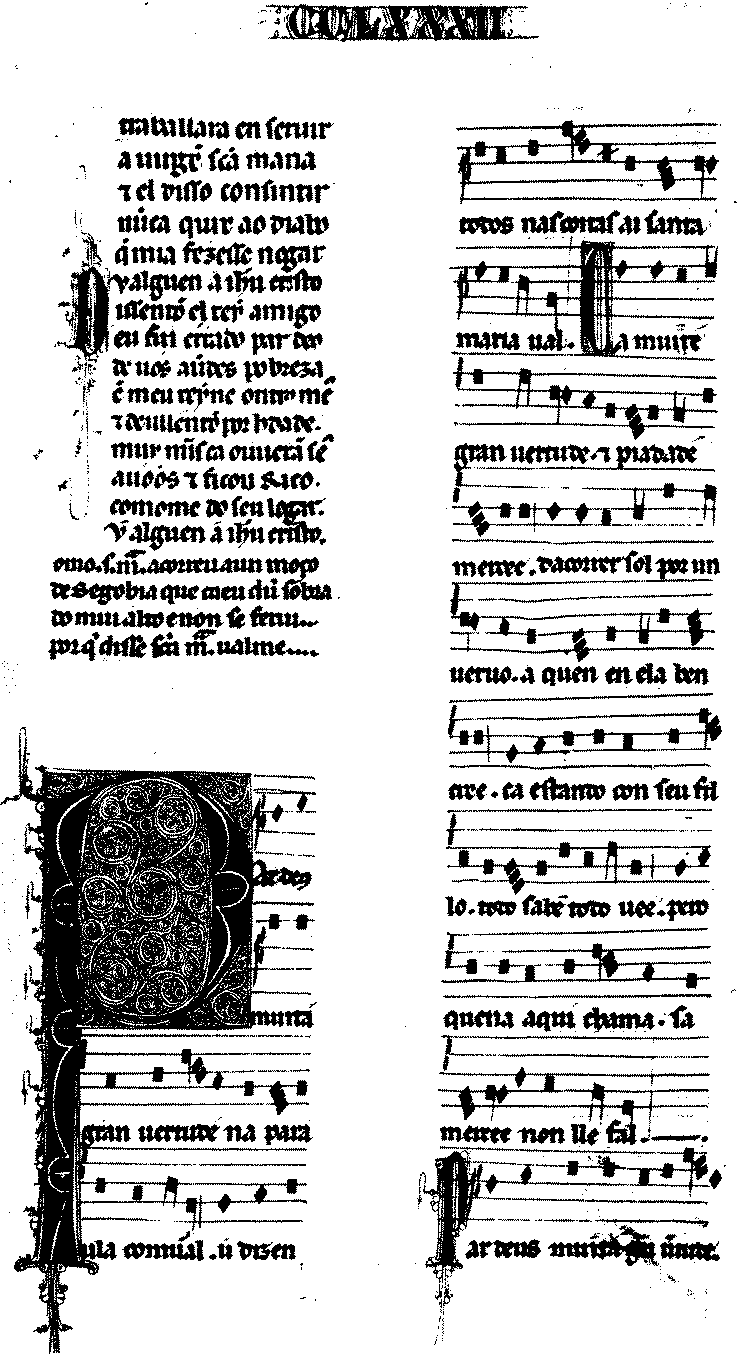 CCLXXXII
traballara en seruir
a uirgẽ scã maria
⁊ el disso consintir
nũca quix ao diabo
q̃ mia fezesse negar
V alguen a ihũ cristo
Dissentõ el rey amigo
eu fui errado par deo
de uos auedes pobreza
ẽ meu reyne
⁊ deullentõ por
mui
auoos ⁊ ficou
comome do seu logar.
V alguen a ihũ cristo.
omo.s.m̃. acorreu aun moço
de Segobia que caeu dũ sobra
do mui alto e non se feriu...
por q̃ disse scã m̃. ualme....
Par deus
muitá
gran uertude na para
ula comũal . u dizen
todos nas coitas ai santa
maria ual . Da muite
gran uertude . ⁊ piadade
mercee . dacorrer sol por un
ueruo . a quen en ela ben
cree . ca estando con seu fil
lo . todo sabe todo uee . pero
quena aqui chama . sa
mercee non lle fal .
Par deus muita grã uertude.